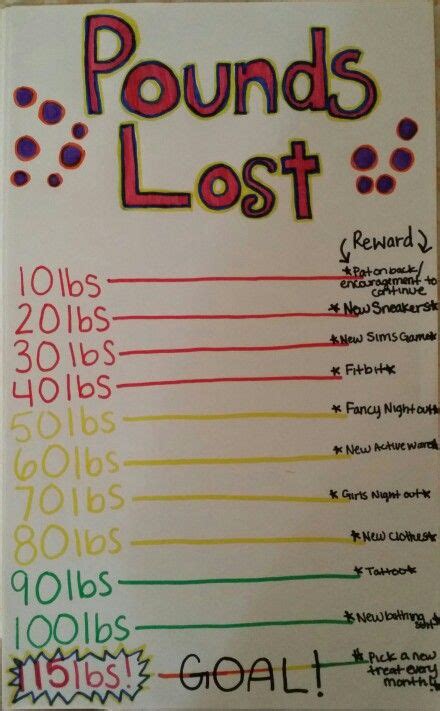 Pounds
Lost
Reward
10lbs *Pat on back/
encouragement to
continue
20lbs *New Sneakers*
30lbs *New Sims Game*
40lbs *Fitbit*
50lbs *Fancy Night out*
60lbs *New Active Ware*
70lbs *Girls Night out*
80lbs *New Clothes*
90lbs *Tattoo*
100lbs *New bathing
suit*
115lbs! GOAL! *Pick a new
treat every
month!*